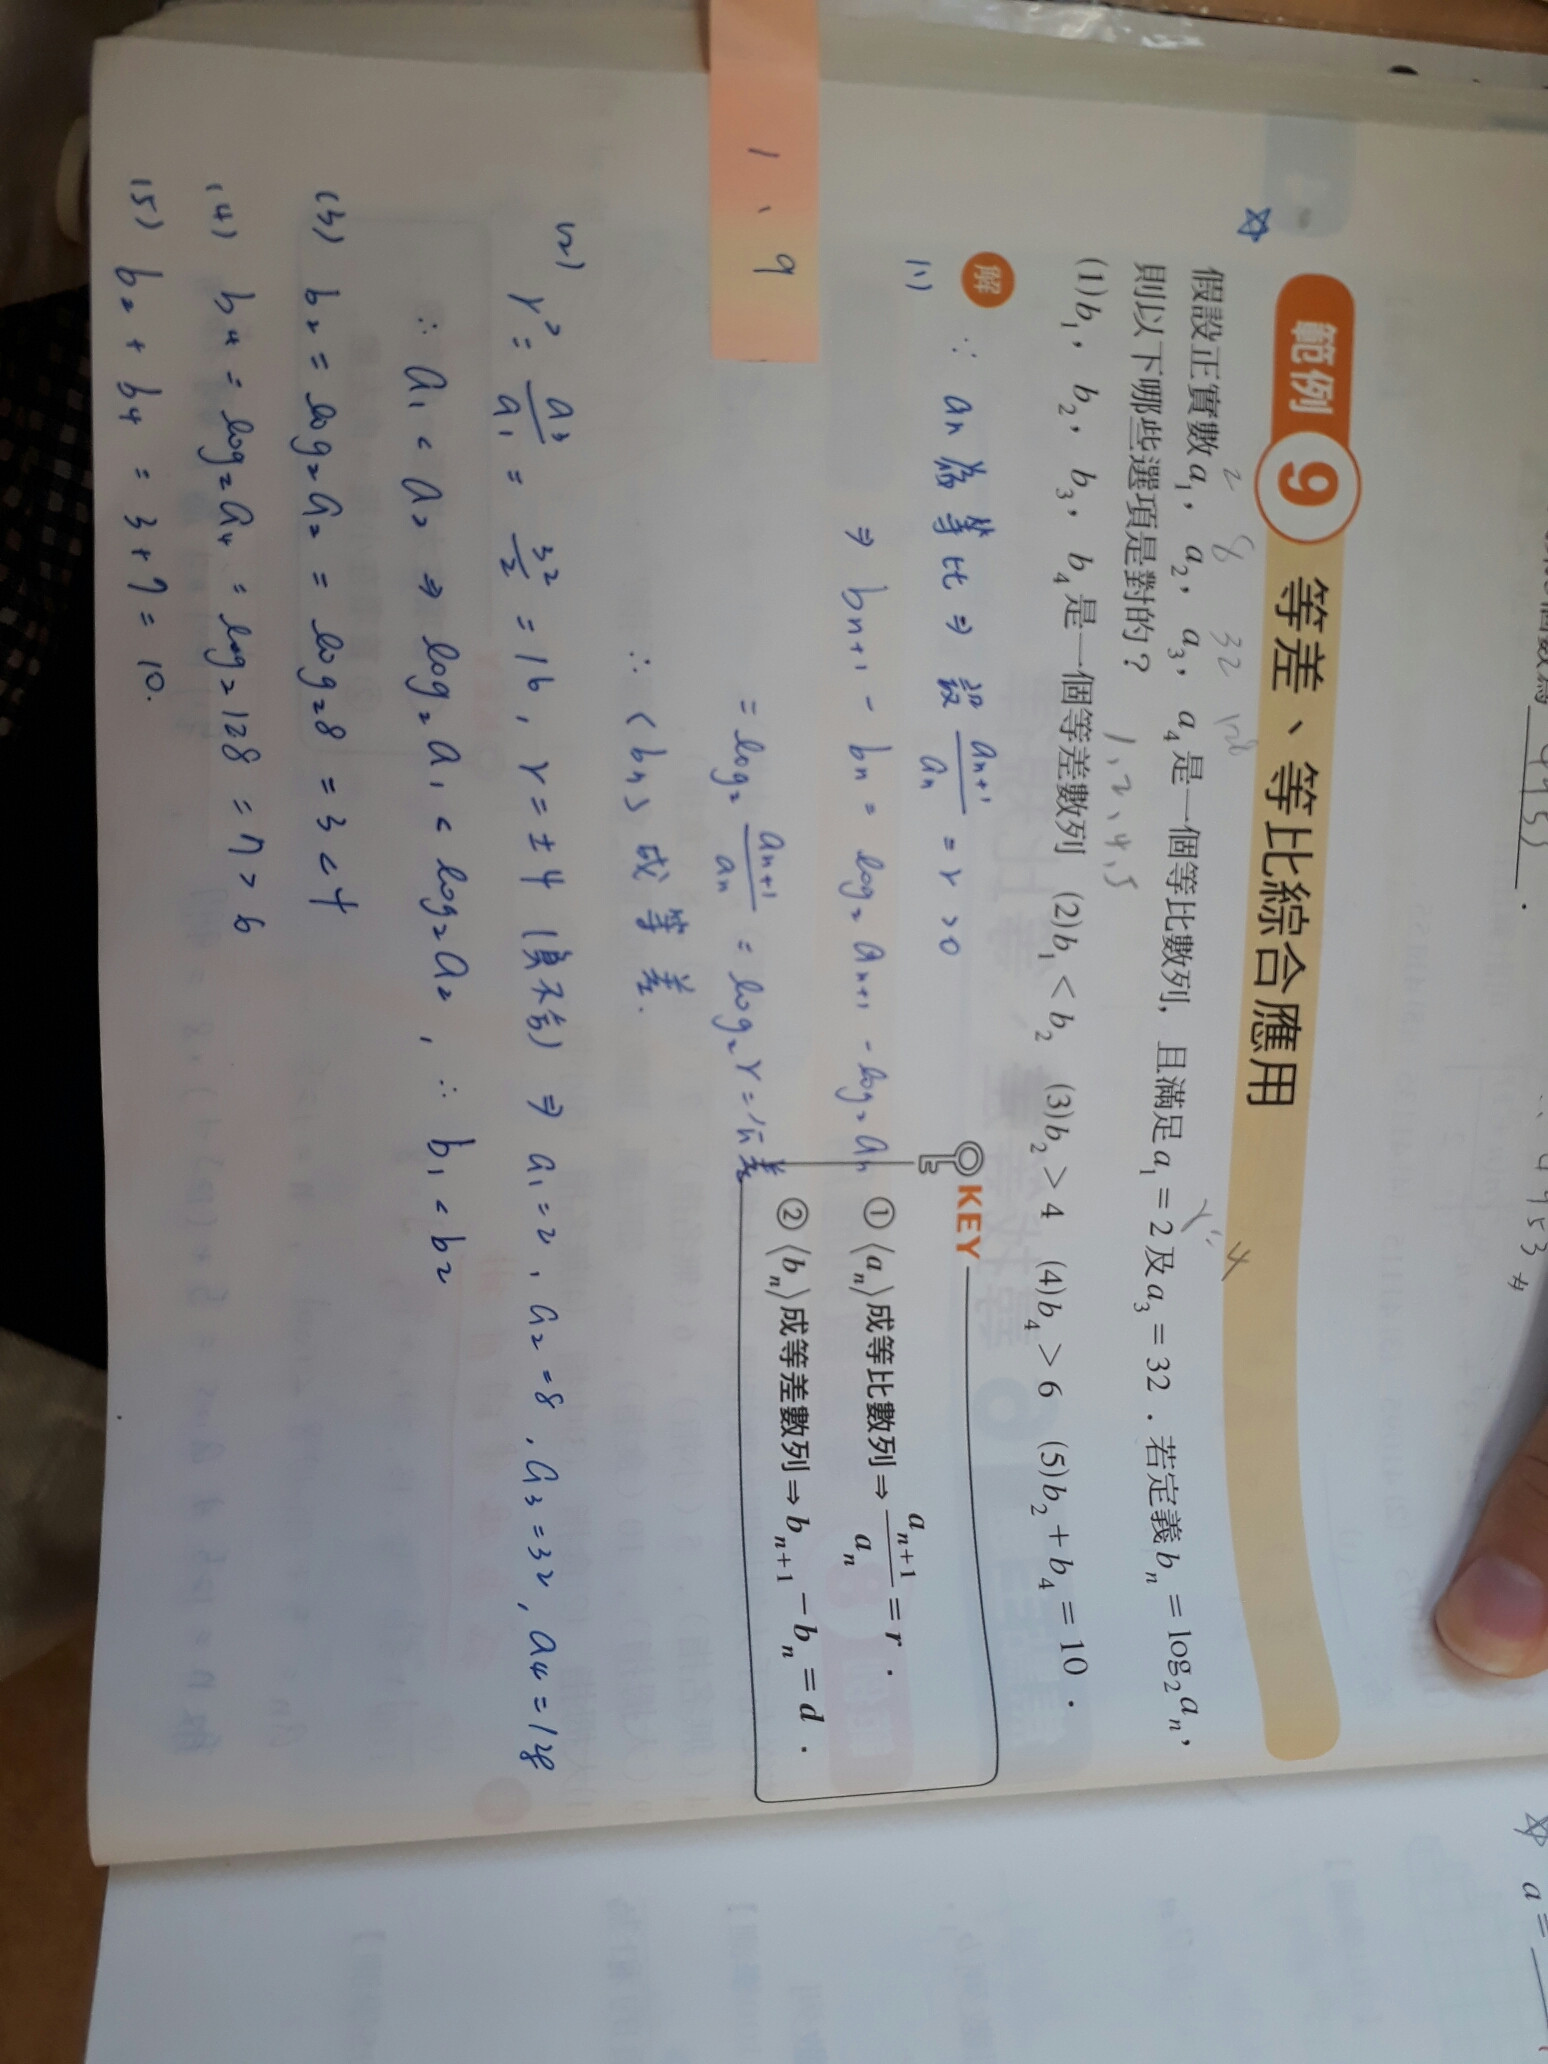 範例 9 等差、等比綜合應用
2 8 32 128
假設正實數a₁，a₂，a₃，a₄是一個等比數列，且滿足a₁＝2及a₃＝32．若定義bₙ＝log₂aₙ，
則以下哪些選項是對的？ 1,2,4,5
(1)b₁，b₂，b₃，b₄是一個等差數列 (2)b₁＜b₂ (3)b₂＞4 (4)b₄＞6 (5)b₂＋b₄＝10．
解
KEY
①⟨aₙ⟩成等比數列⇒aₙ₊₁/aₙ＝r．
②⟨bₙ⟩成等差數列⇒bₙ₊₁－bₙ＝d．
(1) ∵ aₙ 為等比 ⇒ 設 aₙ₊₁/aₙ = r > 0
⇒ bₙ₊₁ - bₙ = log₂aₙ₊₁ - log₂aₙ
= log₂ aₙ₊₁/aₙ = log₂r = 公差
∴ ⟨bₙ⟩ 成等差.
(2) r² = a₃/a₁ = 32/2 = 16, r = ±4 (負不合) ⇒ a₁=2, a₂=8, a₃=32, a₄=128
∴ a₁ < a₂ ⇒ log₂a₁ < log₂a₂, ∴ b₁ < b₂
(3) b₂ = log₂a₂ = log₂8 = 3 < 4
(4) b₄ = log₂a₄ = log₂128 = 7 > 6
(5) b₂ + b₄ = 3 + 7 = 10.
1、9